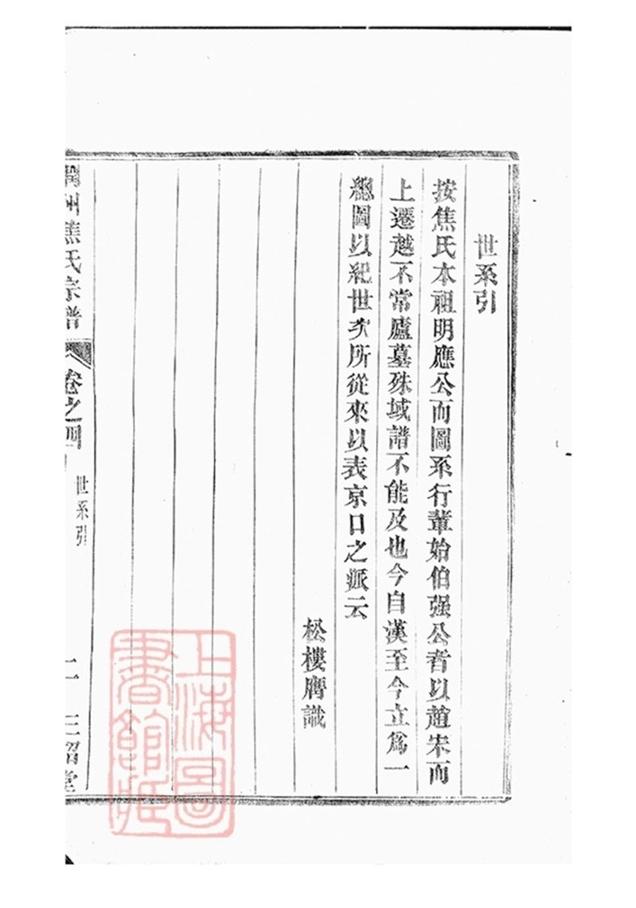 世系引
按焦氏本祖明應公而圖系行輩始伯强公者以趙宋而
上遷越不常廬墓殊域譜不能及也今自漢至今立爲一
總圖以紀世次所從來以表京口之派云
松樓膺識
潤州焦氏宗譜
卷之四
世系引
二
三詔堂
上海圖書館藏